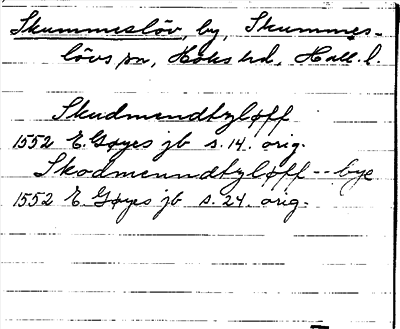 Skummeslöv, by, Skummes-
lövs sn, Höks hd, Hall. l.
Skudmendtzløff
1552 E. Gøyes jb s. 14. orig.
Skodmenndtzløff -- bye
1552 E. Gøyes jb s. 24. orig.